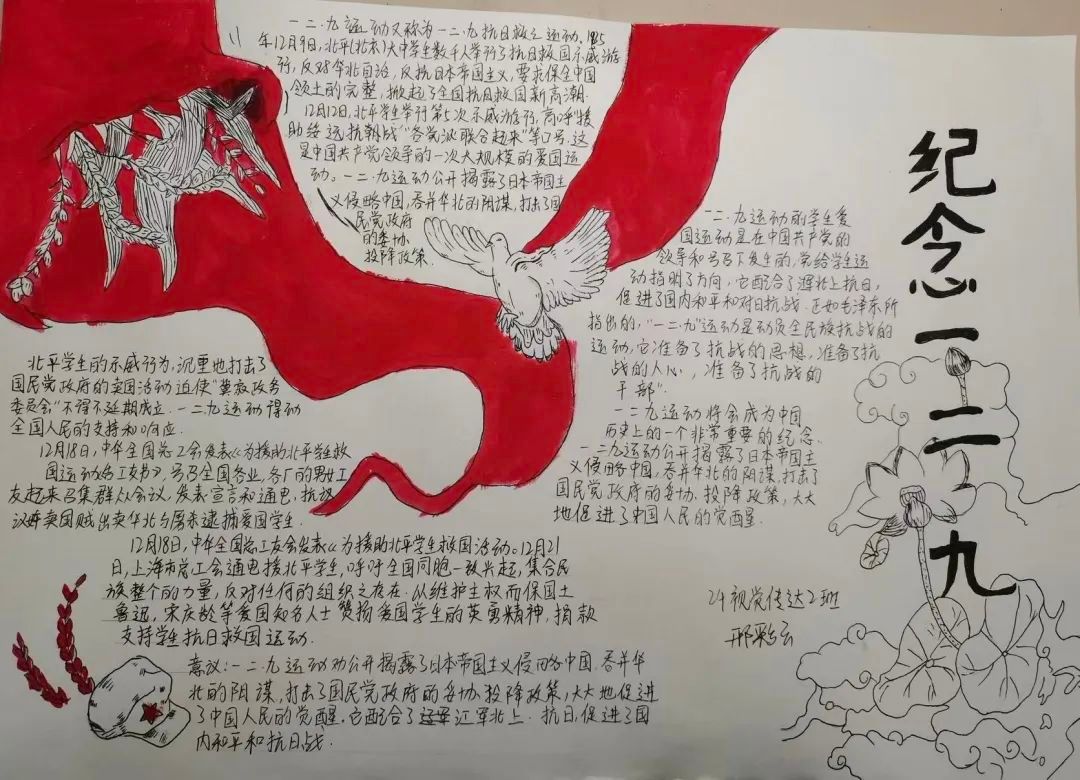 纪念一二九
一二·九运动又称为一二·九抗日救亡运动.1935
年12月9日,北平(北京)大中学生数千人举行了抗日救国示威游
行,反对华北自治,反抗日本帝国主义,要求保全中国
领土的完整,掀起了全国抗日救国新高潮.
12月12日,北平学生举行第5次示威游行,高呼"援
助绥远抗战""各党派联合起来"等口号.这
是中国共产党领导的一次大规模的爱国运
动。一二·九运动公开揭露了日本帝国主
义侵略中国,吞并华北的阴谋,打击了国
民党政府
的妥协
投降政策
一二·九运动的学生爱
国运动是在中国共产党的
领导和号召下发生的,党给学生运
动指明了方向,它配合了红军北上抗日,
促进了国内和平和对日抗战.正如毛泽东所
指出的,"一二·九"运动是动员全民族抗战的
运动,它准备了抗战的思想,准备了抗
战的人心,准备了抗战的
干部".
一二九运动将会成为中国
历史上的一个非常重要的纪念.
一二九运动公开揭露了日本帝国主
义侵略中国,吞并华北的阴谋,打击了
国民党政府的妥协,投降政策,大大
地促进了中国人民的觉醒.
北平学生的示威行为,沉重地打击了
国民党政府的卖国活动迫使"冀察政务
委员会"不得不延期成立.一二九运动得动
全国人民的支持和响应.
12月18日,中华全国总工会发表《为援助北平学生救
国运动给工友书》,号召全国各业,各厂的男女工
友起来召集群众会议,发表宣言和通电,抗议
卖国贼出卖华北与屠杀逮捕爱国学生.
12月18日,中华全国总工友会发表《为援助北平学生救国活动。12月21
日,上海市总工会通电援北平学生,呼吁全国同胞一致兴起,集合民
族整个的力量,反对任何的组织之存在.从维护主权而保国土
鲁迅,宋庆龄等爱国知名人士赞扬爱国学生的英勇精神,捐款
支持学生抗日救国运动.
意议:一二·九运动公开揭露了日本帝国主义侵略中国,吞并华
北的阴谋,打击了国民党政府的妥协投降政策,大大地促进
了中国人民的觉醒.它配合了江军北上.抗日,促进了国
内和平和抗日战.
24视觉传达2班
邢彩云